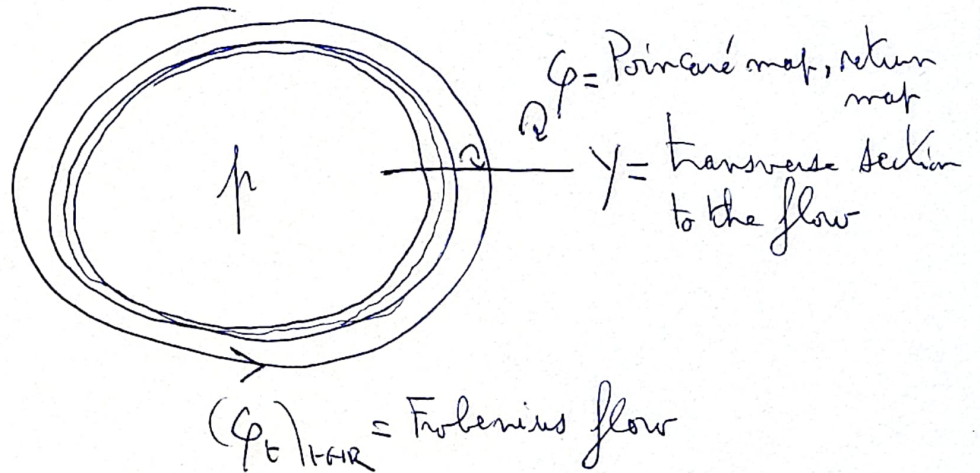 φ = Poincaré map, return
map
p
Y = transverse section
to the flow
(φ_t)_{t∈ℝ} = Frobenius flow